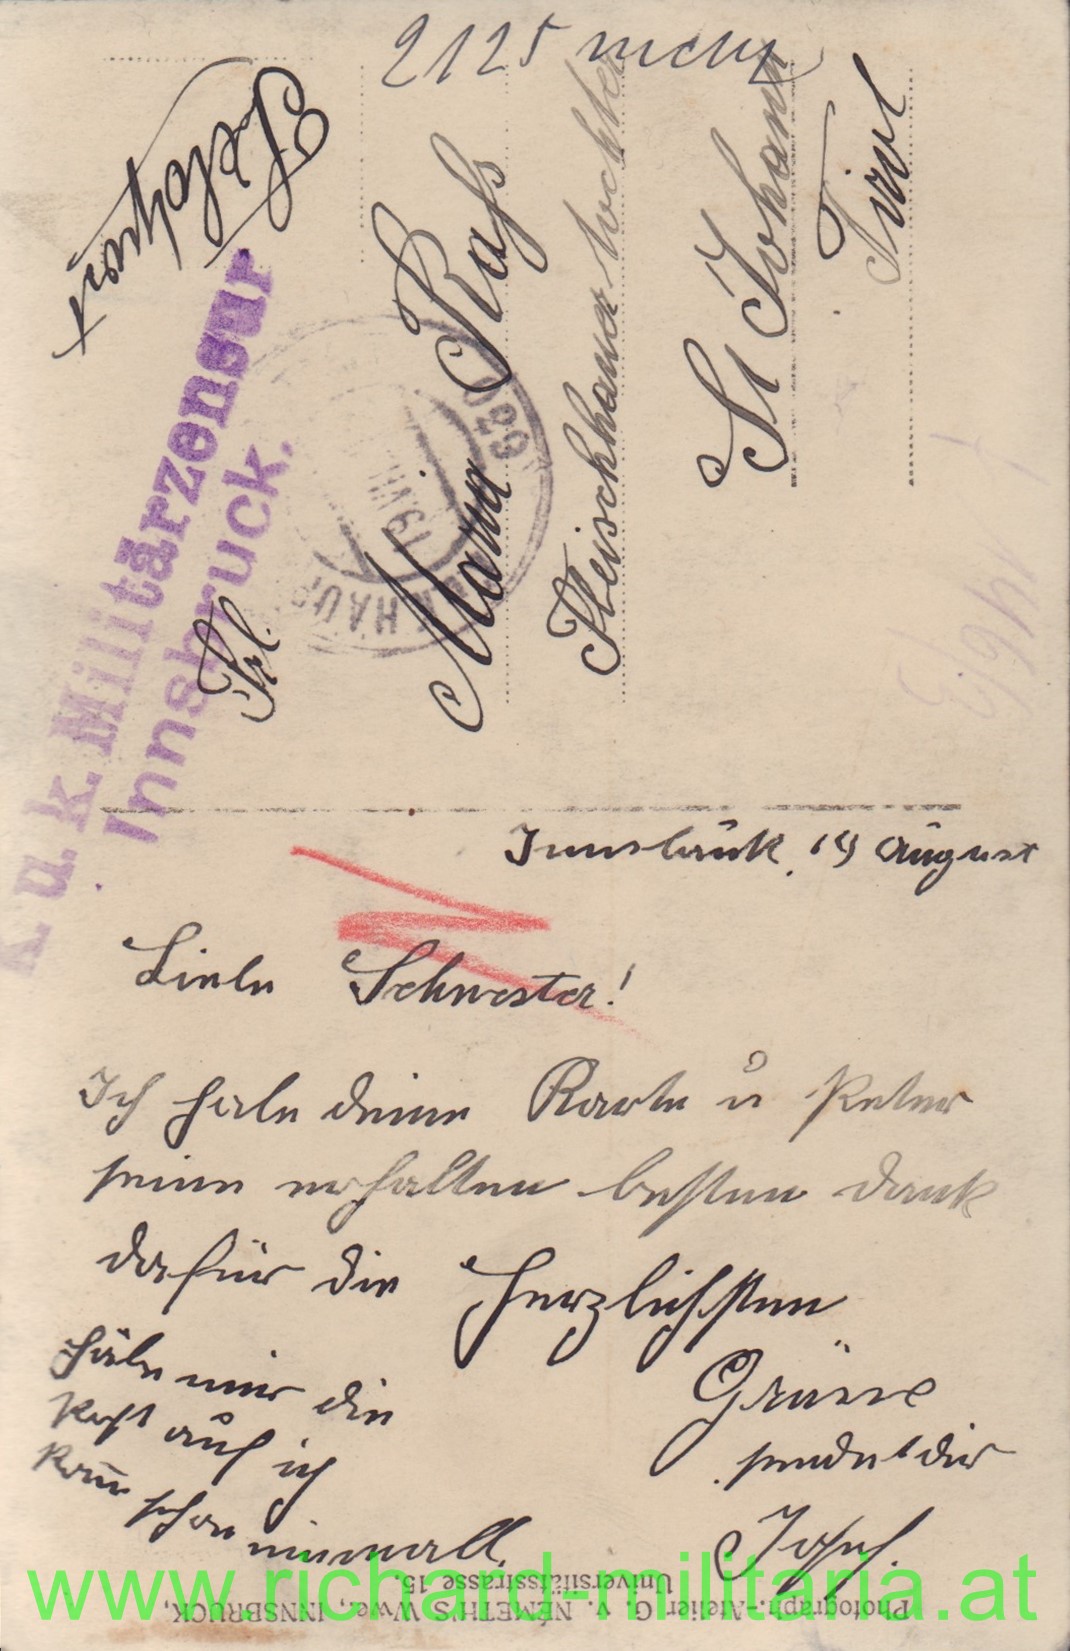 Feldpost
k. u. k. Militärzensur
Innsbruck.
2125
Frl.
Maria Rass
Fleischhauertochter
St Johann
Tirol
Innsbruck, 19 August
Liebe Schwester!
Ich habe deine Karte u Peter
seine erhalten besten dank
dafür die Herzlichsten
Grüsse
sendet dir
Josef.
mir die
auf ich
schon einmall.
Photograph.-Atelier G. v. NÉMETH'S Wwe., INNSBRUCK,
Universitätsstrasse 15.
www.richard-militaria.at